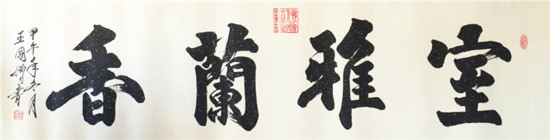 室雅蘭香
甲午年冬月
王國
書